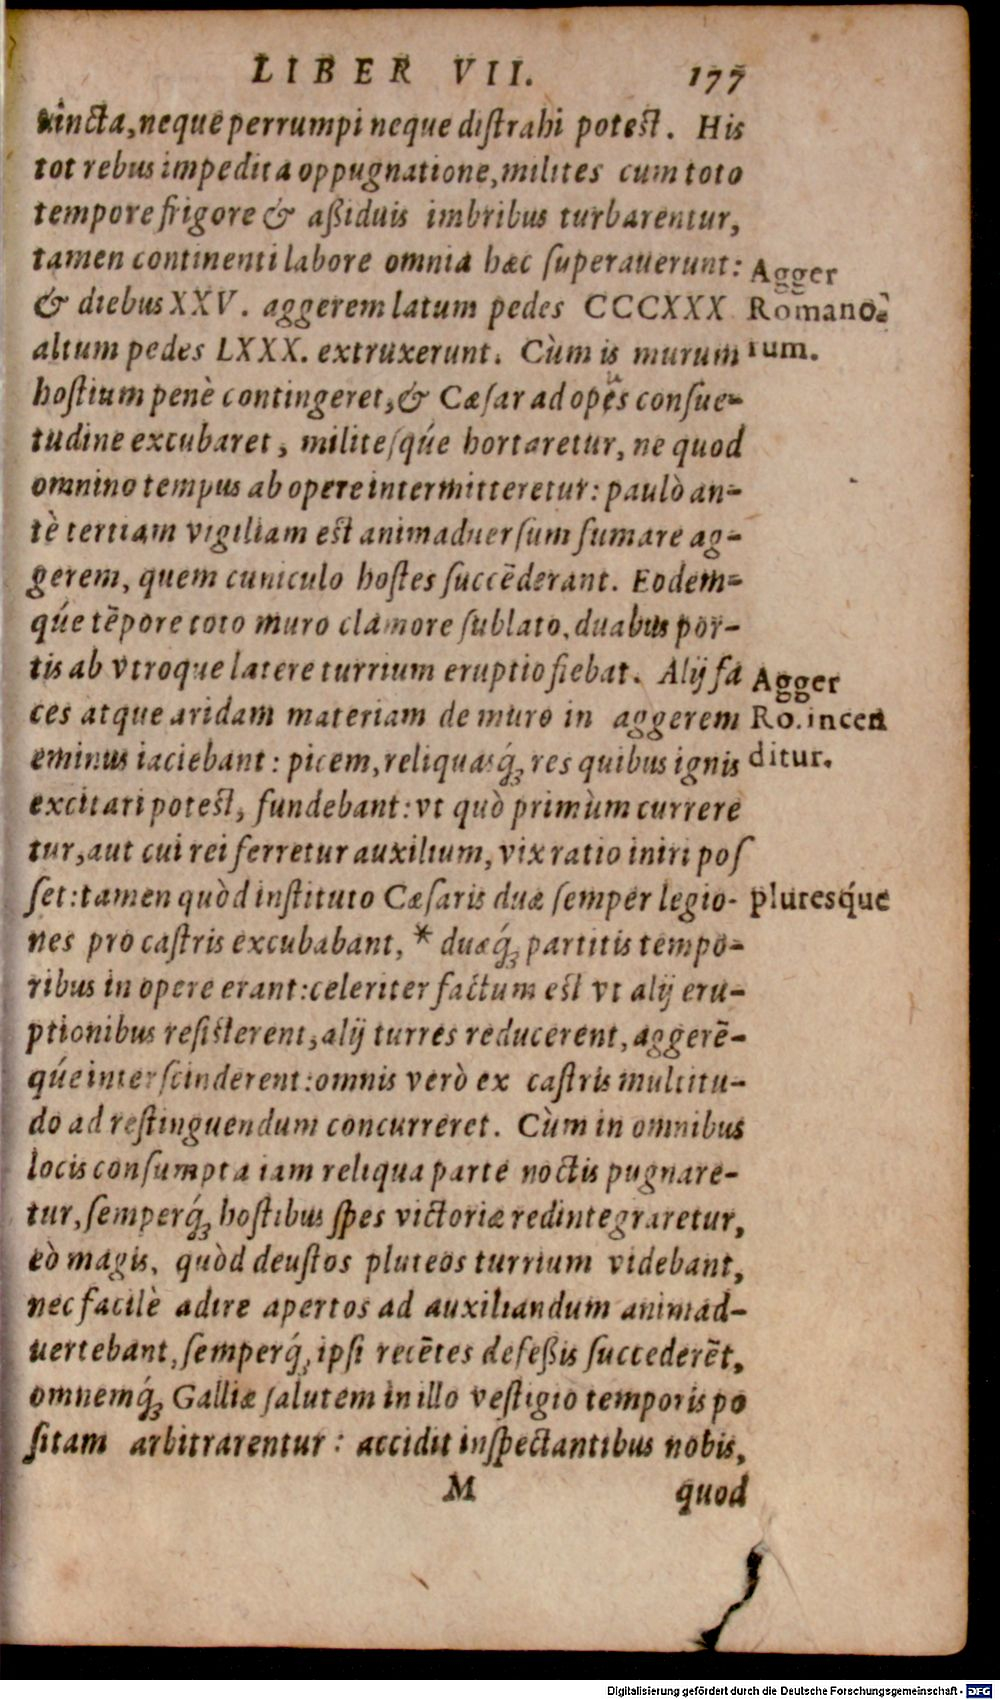 LIBER VII. 177
vincta, neque perrumpi neque distrahi potest. His
tot rebus impedita oppugnatione, milites cum toto
tempore frigore & aßiduis imbribus turbarentur,
tamen continenti labore omnia hæc superauerunt:
& diebus XXV. aggerem latum pedes CCCXXX
altum pedes LXXX. extruxerunt. Cùm is murum
hostium penè contingeret, & Cæsar ad opes consue-
tudine excubaret, militesq́ue hortaretur, ne quod
omnino tempus ab opere intermitteretur: paulò an-
tè tertiam vigiliam est animaduersum fumare ag-
gerem, quem cuniculo hostes succēderant. Eodem-
q́ue tēpore toto muro clamore sublato, duabus por-
tis ab vtroque latere turrium eruptio fiebat. Alij fa
ces atque aridam materiam de muro in aggerem
eminus iaciebant: picem, reliquasq́; res quibus ignis
excitari potest, fundebant: vt quò primùm currere
tur, aut cui rei ferretur auxilium, vix ratio iniri pos
set: tamen quòd instituto Cæsaris duæ semper legio-
nes pro castris excubabant, * duæq́; partitis tempo-
ribus in opere erant: celeriter factum est vt alij eru-
ptionibus resisterent, alij turres reducerent, aggerē-
q́ue interscinderent: omnis verò ex castris multitu-
do ad restinguendum concurreret. Cùm in omnibus
locis consumpta iam reliqua parte noctis pugnare-
tur, semperq́; hostibus spes victoriæ redintegraretur,
eò magis, quòd deustos pluteos turrium videbant,
nec facilè adire apertos ad auxiliandum animad-
uertebant, semperq́; ipsi recētes defeßis succederēt,
omnemq́; Galliæ salutem in illo vestigio temporis po
sitam arbitrarentur: accidit inspectantibus nobis,
M quod
Agger
Romano-
rum.
Agger
Ro. incen
ditur.
pluresq́ue
Digitalisierung gefördert durch die Deutsche Forschungsgemeinschaft - DFG